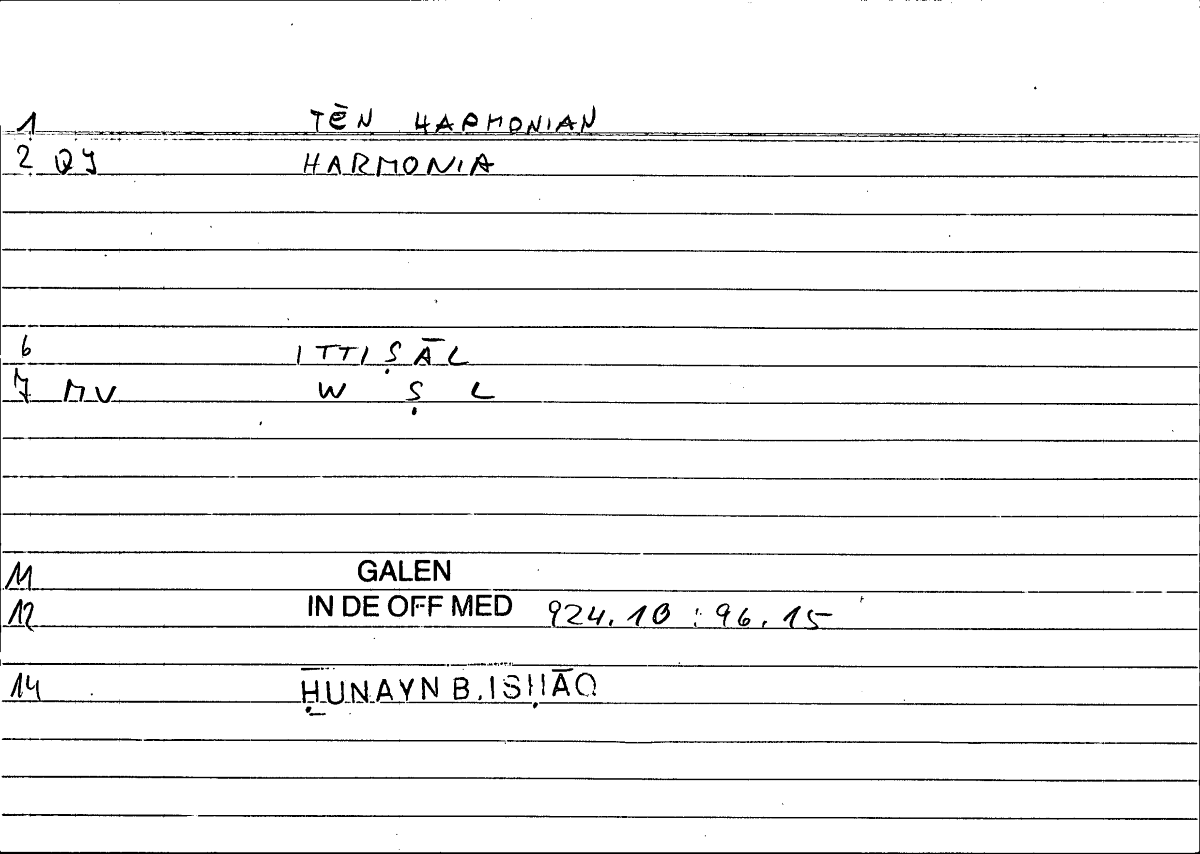 1 TĒN HARMONIAN
2 QJ HARMONIA
6 ITTIṢĀL
7 MV W Ṣ L
11 GALEN
12 IN DE OFF MED 924.10 : 96.15
14 ḤUNAYN B. ISḤĀQ